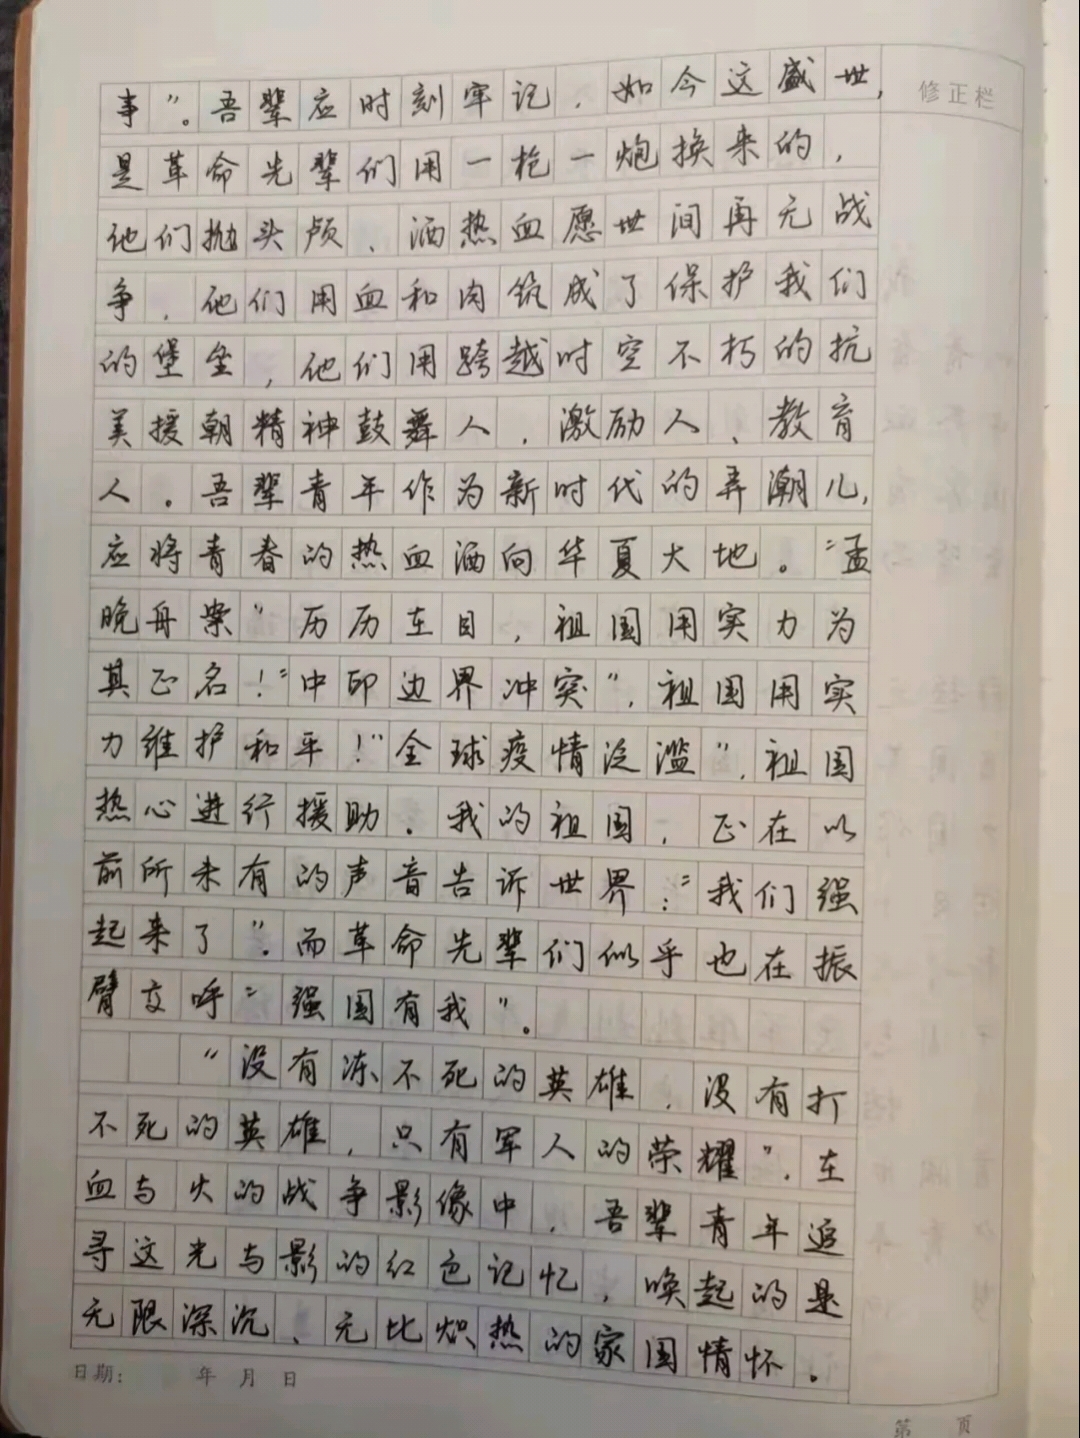 修正栏
事”。吾辈应时刻牢记，如今这盛世，
是革命先辈们用一枪一炮换来的，
他们抛头颅、洒热血愿世间再无战
争，他们用血和肉筑成了保护我们
的堡垒，他们用跨越时空不朽的抗
美援朝精神鼓舞人，激励人、教育
人。吾辈青年作为新时代的弄潮儿，
应将青春的热血洒向华夏大地。“孟
晚舟案”历历在目，祖国用实力为
其正名！“中印边界冲突”，祖国用实
力维护和平！“全球疫情泛滥”，祖国
热心进行援助。我的祖国，正在以
前所未有的声音告诉世界：“我们强
起来了”。而革命先辈们似乎也在振
臂交呼“强国有我”。
“没有冻不死的英雄，没有打
不死的英雄，只有军人的荣耀”，在
血与火的战争影像中，吾辈青年追
寻这光与影的红色记忆，唤起的是
无限深沉、无比炽热的家国情怀。
日期：　年　月　日
第　页